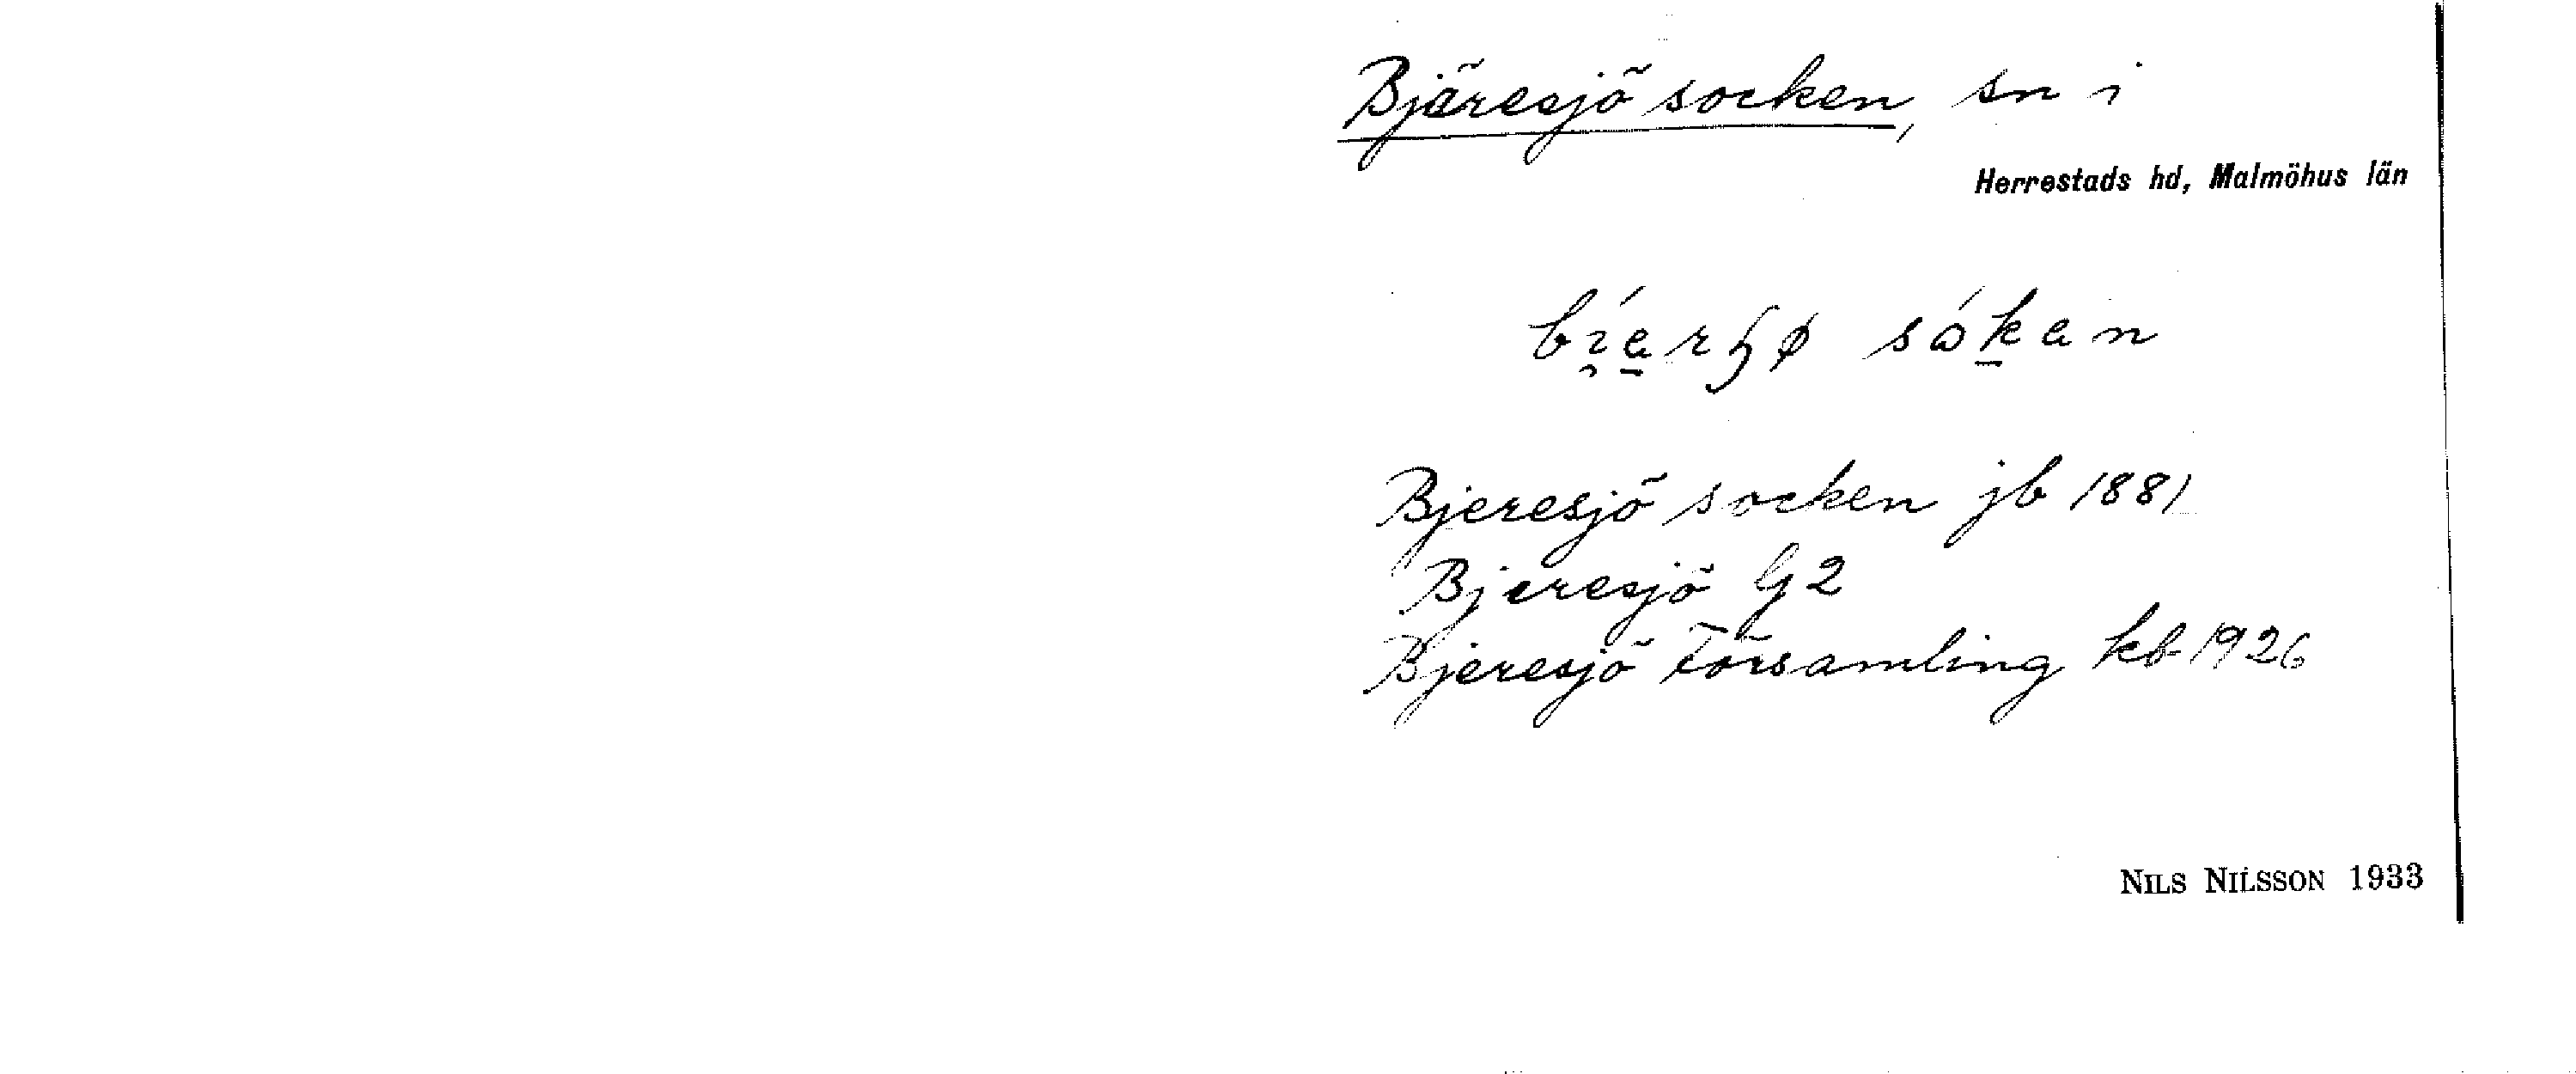 Bjäresjö socken, sn i
Herrestads hd, Malmöhus län
Bjeresjö socken jb 1881
Bjeresjö G2
Bjeresjö Församling kb 1926
NILS NILSSON 1933